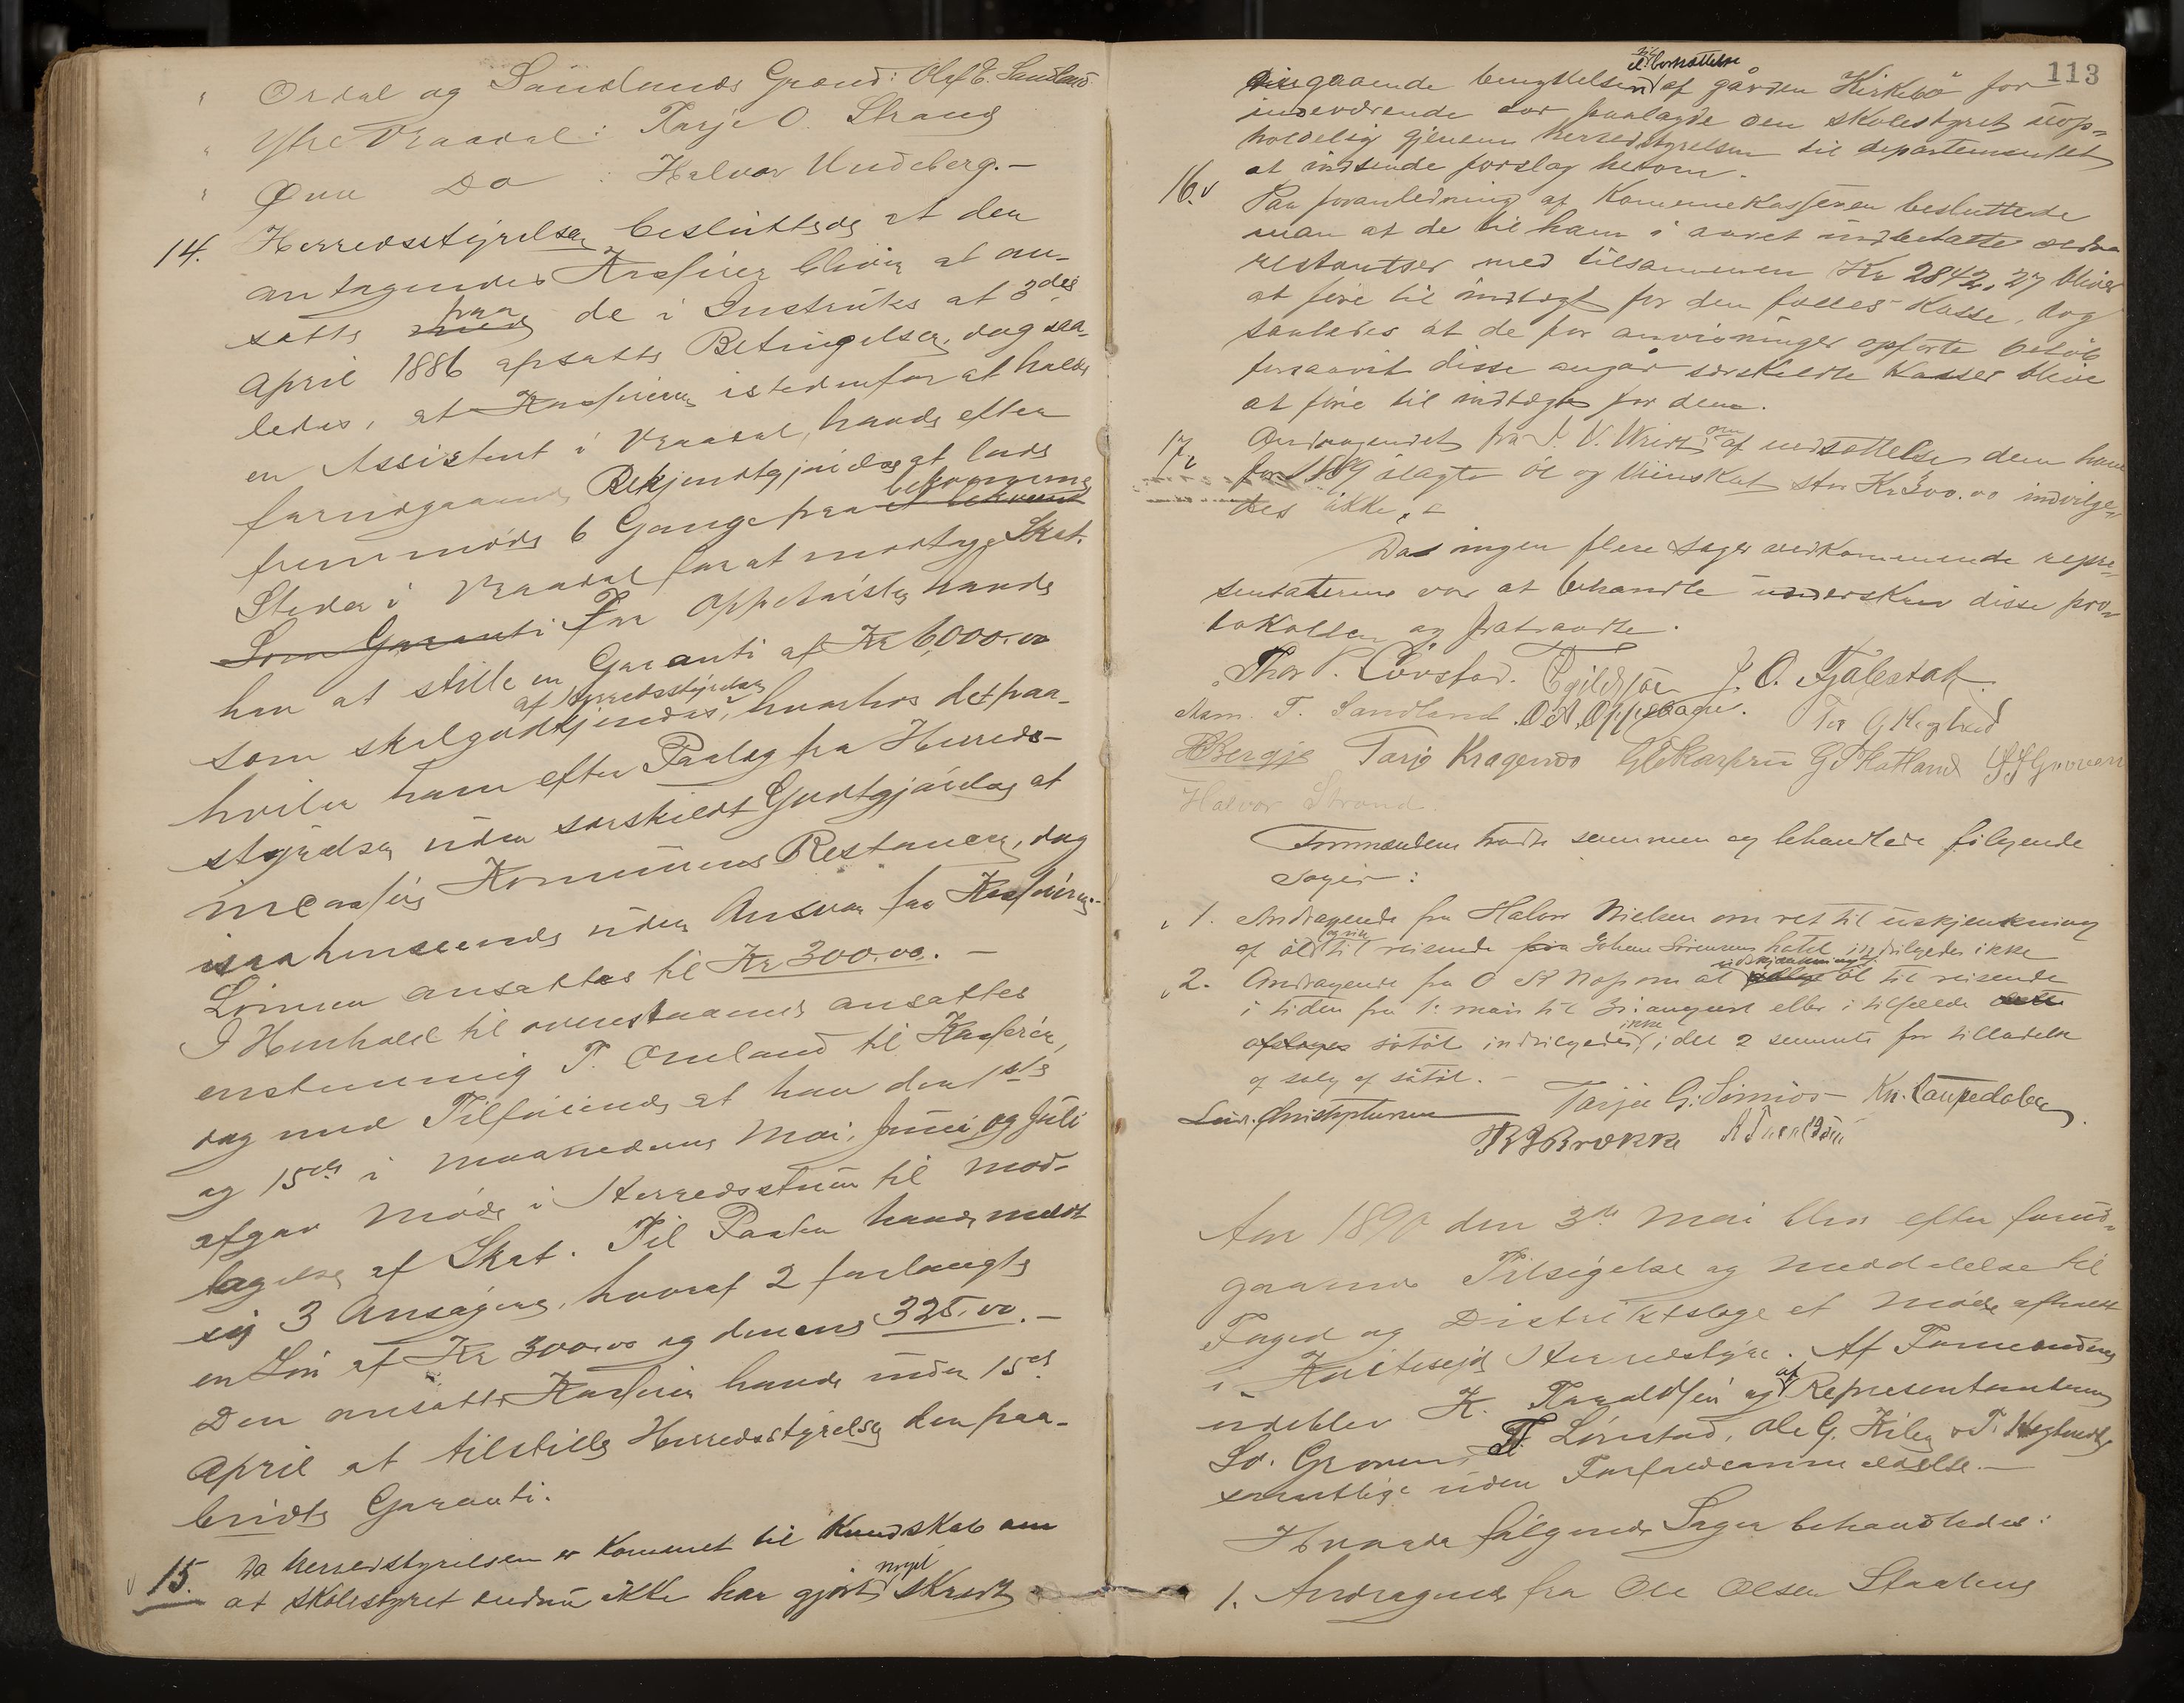 " Ordal og Sundlunds Grænd: Olaf E. Sandland
" Ytre Vraadal: Tarje O. Strand
" Øvre Do : Halvor Undeberg.—
14. Herredsstyrelsen besluttede at den
antagendes Kasserer bliver at an-
sætte med paa de i Instruks af 3die
April 1886 opsatte Betingelser, dog saa-
ledes, at Kassereren istedenfor at holde
en Assistent i Vraadal, havde efter
forudgaaende Bekjendtgjørelse at lade
fremmøde 6 Gange paa et bekvemt bekvemme
Steder i Vraadal for at modtage Skat.
Som Garanti For Oppebørsler havde
han at stille en Garanti af Kr 6000.00
som skal godkjendes af Herredsstyrelsen, hvorhos det paa-
hviler ham efter Paalæg fra Herreds-
styrelsen uden særskildt Godtgjørelse at
incassere Kommunens Restancer, dog
isaahenseende uden Ansvar for Kassereren.—
Lønnen ansattes til Kr 300.00. —
I Henhold til ovenstaaende ansattes
enstemmig T. Omland til Kasserer,
dog med Tilføiende at han den 1ste
og 15de i Maanederne Mai, Juni og Juli
afgav Møde i Herredsstuen til Mod-
tagelse af Skat. Til Posten havde meldt
sig 3 Ansøgere, hvoraf 2 forlangte
en Løn af Kr 300.00 og den ene 325.00.—
Den ansatte Kasserer havde inden 15de
April at tilstille Herredsstyrelsen den paa-
budte Garanti.
15. Da herredstyrelsen er kommet til Kundskab om
at skolestyret endnu ikke har gjort noget skridt
113
angaaende benyttelsen af gården Kirkebø for
indeværende aar paalagde den skolestyret uop-
holdelig gjennem herredstyrelsen til departementet
at indsende forslag herom.
16. Paa foranledning af Kommunekasseren besluttede
man at de til ham i aaret indbetalte ældre
restantser med tilsammen Kr 2842,27 bliver
at føre til indtægt for den fælles Kasse, dog
saaledes at de for anvisninger opførte beløb
forsaavit disse angår særskildte Kasser blive
at føre til indtægt for dem.
17. Andragendet fra J. V. Wriedt om af nedsættelse i den ham
for 1889 ilagte øl og Vinskat stor Kr 300.00 indvilge-
des ikke. —
Da ingen flere sager vedkommende repre-
sentanterne var at behandle underskrev disse pro-
tokollen og fratraadte.
Thor P. Lønstad. Egildsjøe J. O. Fjalestad.
Aam. T. Sandland. O. N. Oppebøen. Tor G. Heglund
H Bergje Tarje Kragenes G. Hatland
Halvor Strand
Formændene traadte sammen og behandlede følgende
sager:
1. Andragende fra Halvor Nielsen om ret til udskjænkning
af øl og vin til reisende fra Johan Sørensens hotel indvilgedes ikke
2. Andragende fra O K Nap om at udskjænkning øl til reisende
i tiden fra 1. mai til 31. august eller i tilfælde dette
afslages søtøl indvilgedes ikke, idet 2 stemmte for tilladelse
af salg af søtøl. —
Christophersen Tarjei G. Simios Kn. Taupedalen
B J Brokke
Aar 1890 den 3de Mai blev efter forud-
gaaende Tilsigelse og Meddelelse til
Foged og Distriktslæge et Møde afholdt
i Kviteseid Herredstyre. Af Formændene
udeblev K. Taraldsen og af Representanterne
Sv. Groven, T. Lønstad, Ole G. Kilen & T. Heglund
samtlige uden Forfaldsanmeldelse.—
Hvorda følgende Sager behandledes:
1. Andragende fra Ole Olsen Staaland